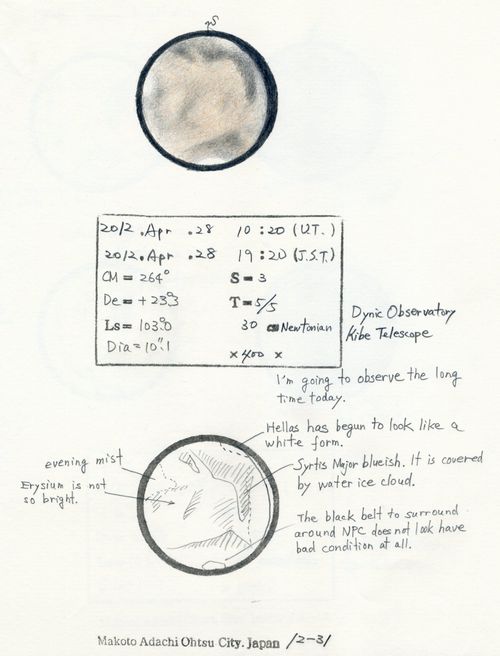 S
2012 . Apr . 28 10 : 20 (U.T.)
2012 . Apr . 28 19 : 20 (J.S.T.)
CM = 264° S = 3
De = +23.°3 T = 5/5
Ls = 103.°0 30 cm Newtonian
Dia = 10".1 × 400 ×
Dynic Observatory
Kibe Telescope
I'm going to observe the long
time today.
Hellas has begun to look like a
white form.
evening mist
Erysium is not
so bright.
Syrtis Major blueish. It is covered
by water ice cloud.
The black belt to surround
around NPC does not look have
bad condition at all.
Makoto Adachi Ohtsu City. Japan 12-31